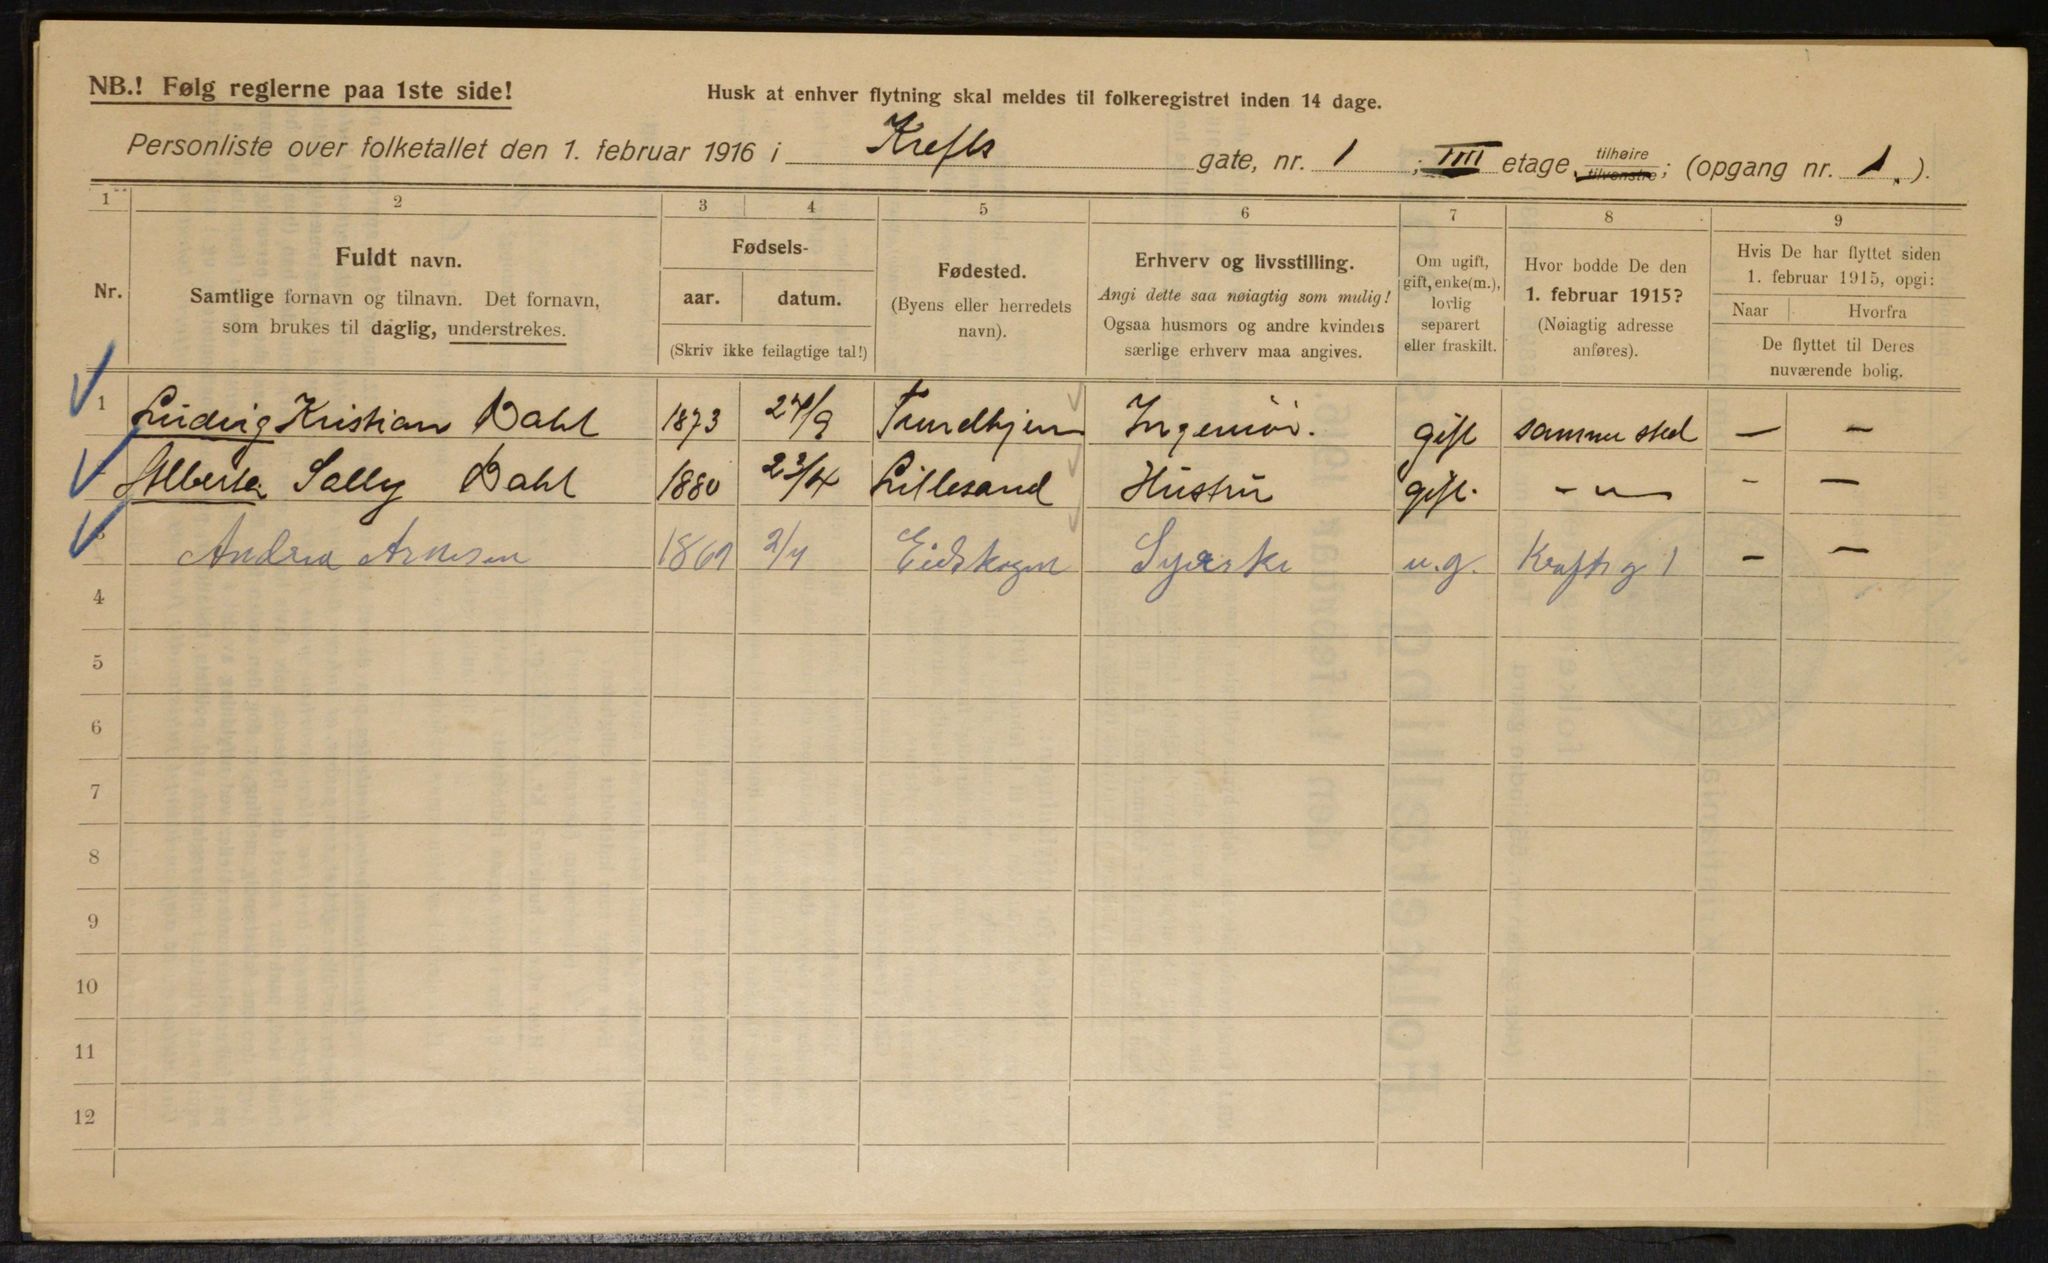 NB.! Følg reglerne paa 1ste side!
Husk at enhver flytning skal meldes til folkeregistret inden 14 dage.
Personliste over folketallet den 1. februar 1916 i Krefts gate, nr. 1 ; IIII etage, tilhøire tilvenstre; (opgang nr. 1.).
1 2 3 4 5 6 7 8 9
Nr.
Fuldt navn.
Samtlige fornavn og tilnavn. Det fornavn,
som brukes til daglig, understrekes.
Fødsels-
aar. datum.
(Skriv ikke feilagtige tal!)
Fødested.
(Byens eller herredets
navn).
Erhverv og livsstilling.
Angi dette saa nøiagtig som mulig!
Ogsaa husmors og andre kvinders
særlige erhverv maa angives.
Om ugift,
gift, enke(m.),
lovlig
separert
eller fraskilt.
Hvor bodde De den
1. februar 1915?
(Nøiagtig adresse
anføres).
Hvis De har flyttet siden
1. februar 1915, opgi:
Naar Hvorfra
De flyttet til Deres
nuværende bolig.
1 Ludvig Kristian Dahl 1873 27/9 Trundhjem Ingeniør. gift samme sted — —
Alberta Sally Dahl 1880 23/4 Lillesand Hustru gift. - „ - - —
3 Andrea Arnesen 1869 2/7 Eidskogen Syerske u.g. Kraftsg 1 — —
4
5
6
7
8
9
10
11
12